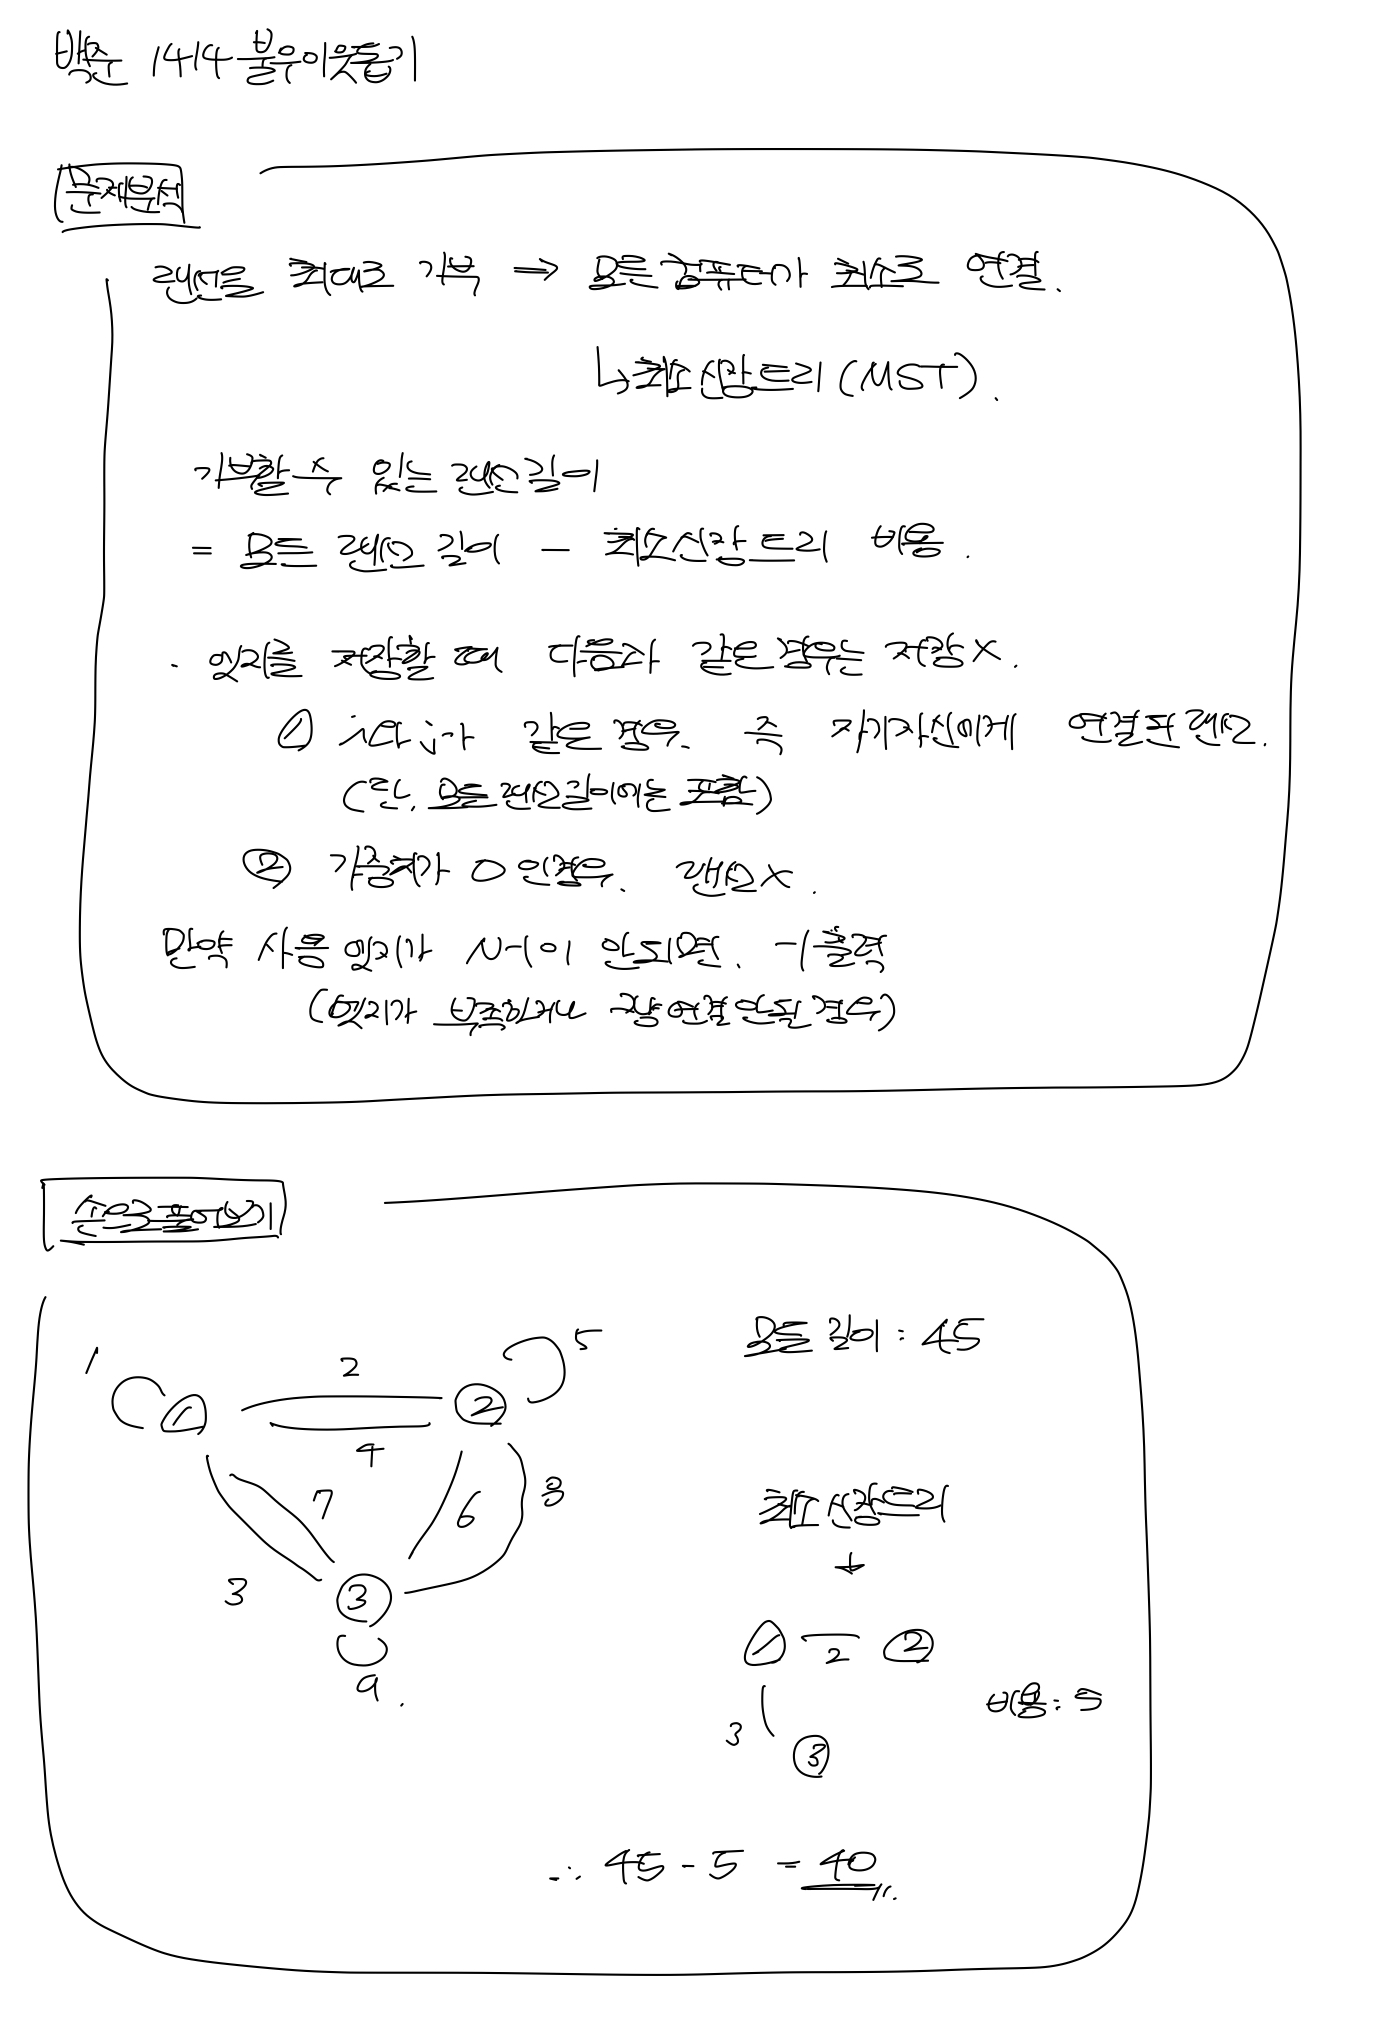 백준 1414 불우이웃돕기
문제분석
랜선을 최대로 기부 ⇒ 모든 컴퓨터가 최소로 연결.
↳ 최소신장트리 (MST).
기부할 수 있는 랜선길이
= 모든 랜선 길이 - 최소신장트리 비용.
· 엣지를 저장할 때 다음과 같은 경우는 저장 X.
① i와 j가 같은 경우. 즉 자기자신에게 연결된 랜선.
(단, 모든 랜선길이에는 포함)
② 가중치가 0인경우. 랜선 X.
만약 사용 엣지가 N-1이 안되면. -1 출력
(엣지가 부족하거나 그냥 연결안된 경우)
손으로풀어보기
1 ① 2 4 ② 5
7 3 6 8
③ 9.
모든 길이 : 45
최소신장트리
↓
① 2 ②
3 ③
비용 : 5
∴ 45 - 5 = 40